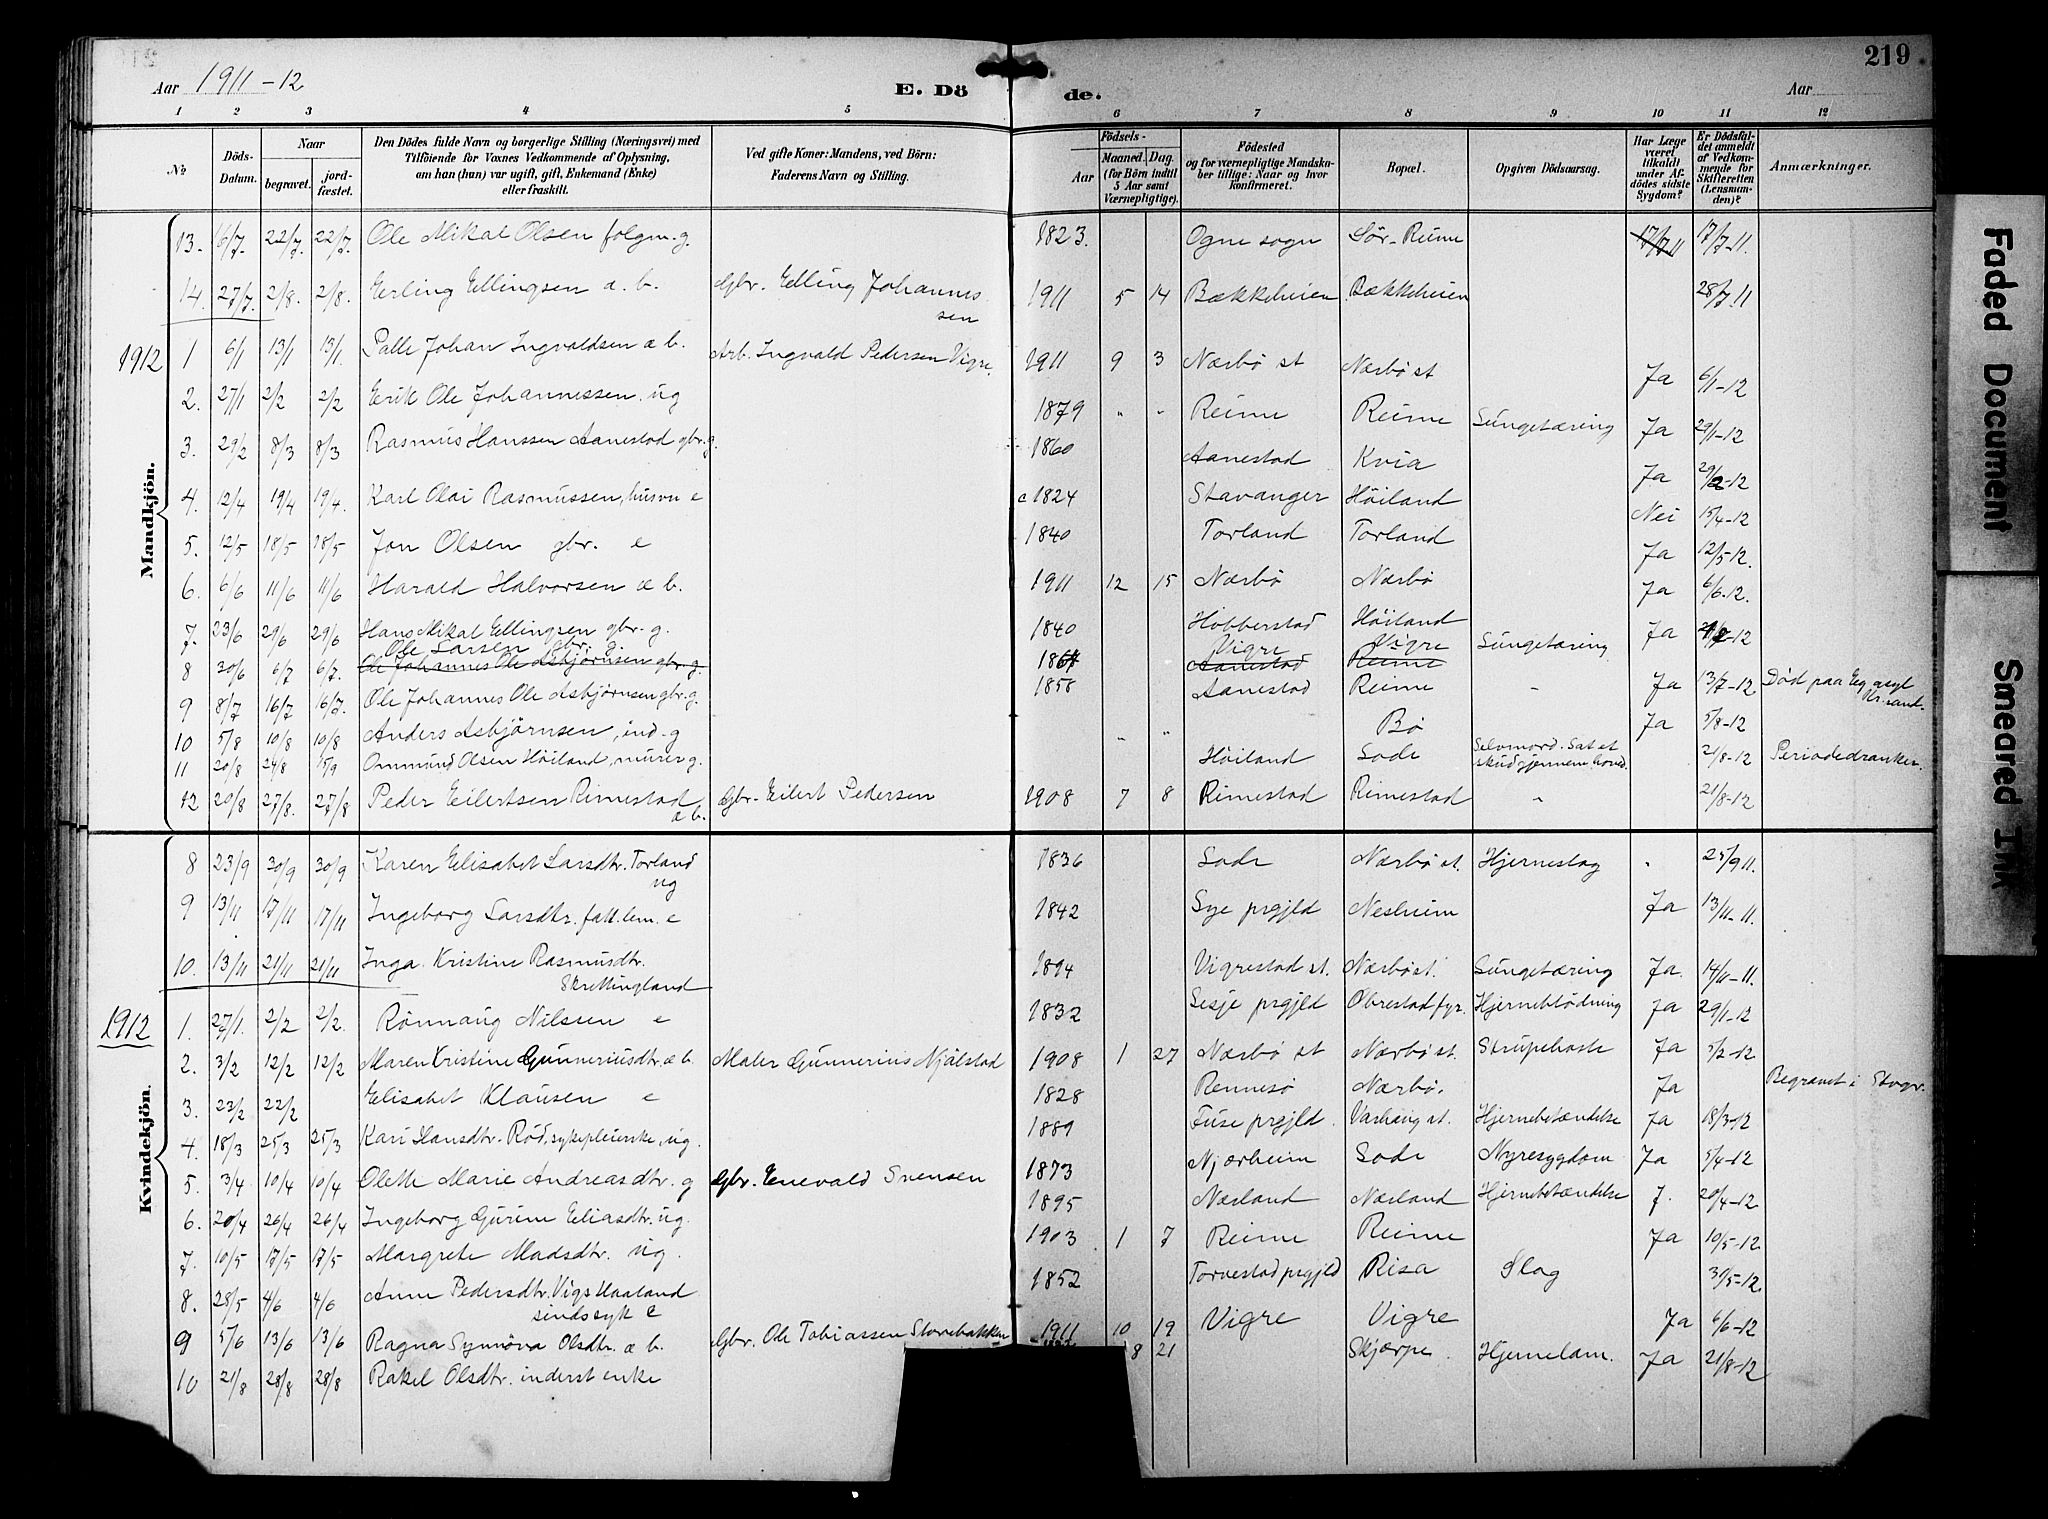 219
Aar 1911-12 E. Dö de. Aar
1 2 3 4 5 6 7 8 9 10 11 12
№ Döds-Datum. Naar begravet. jordfæstet. Den Dödes fulde Navn og borgerlige Stilling (Næringsvei) med Tilföiende for Voxnes Vedkommende af Oplysning, om han (hun) var ugift, gift, Enkemand (Enke) eller fraskilt. Ved gifte Koner: Mandens, ved Börn: Faderens Navn og Stilling. Aar Födsels- Maaned. Dag. (for Börn indtil 5 Aar samt Værnepligtige). Födested og for værnepligtige Mandskaber tillige: Naar og hvor konfirmeret. Bopæl. Opgiven Dödsaarsag. Har Læge været tilkaldt under Afdödes sidste Sygdom? Er Dödsfaldet anmeldt af Vedkommende for Skifteretten (Lensmanden)? Anmærkninger.
Mandkjön.
13. 16/7. 22/7. 22/7. Ole Mikal Olsen folgm. g. 1823. Ogne sogn Sör-Reime 17/7-11 17/7-11.
14. 27/7. 2/8. 2/8. Erling Ellingsen a. b. Gbr. Elling Johannessen 1911 5 14 Bækkeheien Bækkeheien 28/7.11
1912 1 6/1 13/1 13/1. Palle Johan Ingvaldsen æ b. Arb. Ingvald Pedersen Vigre. 1911 9 3 Nærbö st Nærbö st Ja 6/1-12
2. 27/1 2/2 2/2 Erik Ole Johannessen. ug 1879 " " Reime Reime Lungetæring Ja 29/1-12
3. 29/2 8/3 8/3 Rasmus Hanssen Aanestad gbr. g. 1860 Aanestad Kvia Ja 29/2-12
4. 12/4 19/4 19/4. Karl Olai Rasmussen, husm e 1824 Stavanger Höiland Nei 15/4-12
5. 12/5 18/5 18/5 Jon Olsen gbr. e 1840 Torland Torland Ja 12/5-12.
6. 6/6 11/6 11/6 Harald Halvorsen æ b. 1911 12 15 Nærbö Nærbö Ja 6/6-12.
7. 23/6 29/6 29/6 Hans Mikal Ellingsen gbr. g. 1840 Hobberstad Höiland Ja
Ole Larsen gbr. g. Vigre Vigre
8 30/6 6/7 6/7. Ole Johannes Ole Asbjörnsen gbr. g. Aanestad Reime Lungetæring
9 8/7 16/7 16/7. Ole Johannes Ole Asbjörnsen gbr. g. 1858 Aanestad Reime " Ja 13/7-12 Död paa Eg asyl Kr.sand.
10 5/8 10/8 10/8 Anders Asbjörnsen, ind. g " " Bö Ja 5/8-12
11 20/8 24/8 15/9 Ommund Olsen Höiland, murer g. Höiland Lode Selvmord. Sat et skud gjennem hoved. 21/8-12 Periodedranker.
12 20/8 27/8. 27/8 Peder Eilertsen Rimestad æ b. Gbr. Eilert Pedersen 1908 7 8 Rimestad Rimestad " 21/8-12
Kvindekjön.
8 23/9 30/9 30/9 Karen Elisabet Larsdtr. Torland ug 1836 Lode Nærbö st. Hjerneslag " 25/9 11.
9 13/11 17/11 17/11 Ingeborg Larsdtr. fatt. lem. e 1842 Lye prgjld Nesheim Ja 13/11-11.
10. 13/11 21/11 21/11 Inga Kristine Rasmusdtr. Skrettingland 1894 Vigrestad st. Nærbö st. Lungetæring Ja. 14/11-11.
1912 1. 27/1. 2/2 2/2. Rönnaug Nilssen e 1832 Sesje prgjld Obrestad fyr. Hjerneblödning Ja 29/1-12
2. 3/2 12/2 12/2 Maren Kristine Gunneriusdtr. æ b. Maler Gunnerius Njålstad 1908 1 27 Nærbö st Nærbö st. Strupehoste Ja 5/2-12
3. 23/2 22/2 Elisabet Klausen e 1828 Rennesö Nærbö. Ja Begravet i Stvgr.
4. 18/3 25/3 25/3 Kari Hansdtr. Röd, sykepleierske, ug. 1889 Fuse prgjld. Varhaug st. Hjernebetændelse Ja 18/3-12
5. 3/4 10/4 10/4 Olette Marie Andreasdtr. g Gbr. Enevald Svensen 1873 Njærheim Lode Nyresygdom Ja 5/4-12
6. 20/4 26/4 26/4 Ingeborg Gurine Eliasdtr. ug. 1895 Nærland Nærland Hjernebetændelse J. 20/4-12
7. 10/5 17/5 17/5 Margrete Madsdtr. ug. 1903 1 7 Reime Reime Ja 10/5-12
8. 28/5 4/6 4/6 Anne Pedersdtr. Vigs Haaland sindssyk e 1852 Torvestad prgjld Risa Slag 30/5-12.
9 5/6 13/6 13/6 Ragna Synnöva Olsdtr. æ b. Gbr. Ole Tobiassen Storebakken 1911 10 19 Vigre Vigre Ja 6/6-12
10 21/8 28/8 28/8 Rakel Olsdtr. inderst enke 8 21 Skjærpe Hjernelam. Ja 21/8-12
Faded Document
Smeared Ink